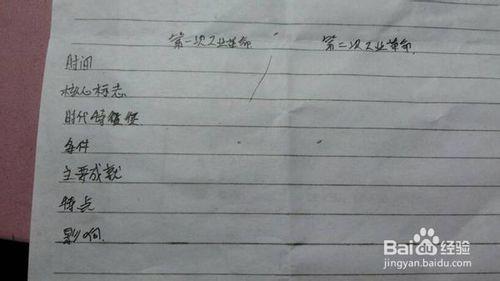 第一次工业革命 第二次工业革命
时间
核心标志
时代特征
条件
主要成就
特点
影响
Baidu经验
jingyan.baidu.com